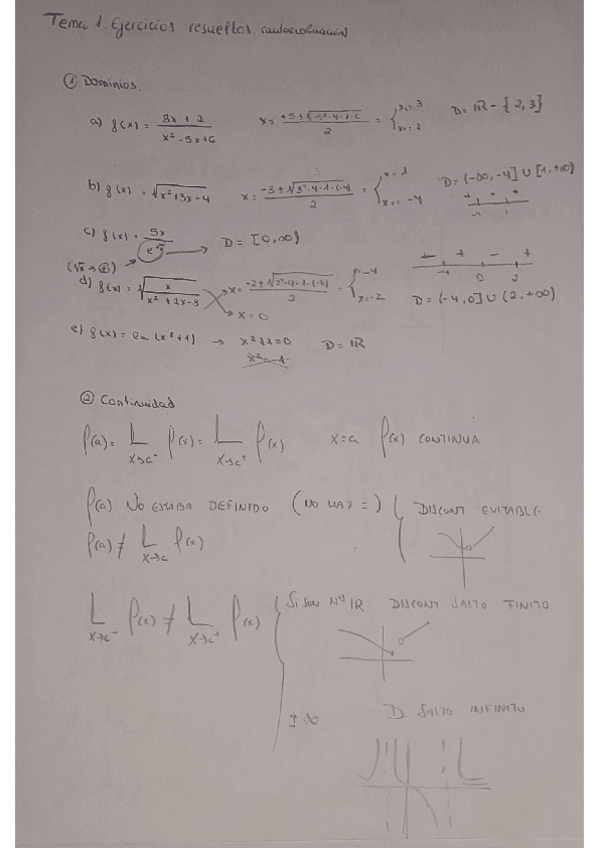 Tema 1. Ejercicios resueltos. (autoevaluación)
① Dominios.
a) f(x) = 3x + 2 / x² - 5x + 6 x = +5 ± √5² - 4·1·6 / 2 = { x₁ = 3 x₂ = 2 D = ℝ - {2,3}
b) f(x) = √x² + 3x - 4 x = -3 ± √3² - 4·1·(-4) / 2 = { x = 1 x = -4 D = (-∞, -4] ∪ [1, +∞)
+ - +
-4 1
c) f(x) = 5x / e^√x → D = [0, ∞)
(√x → ⊕)
d) f(x) = √x / x² + 2x - 8 x = -2 ± √2² - 4·1·(-8) / 2 = { x = -4 x = 2 - + - +
-4 0 2
x = 0 D = (-4, 0] ∪ (2, +∞)
e) f(x) = ln (x² + 1) → x² + 1 = 0 D = ℝ
x² = -1
② Continuidad
f(a) = L x→a⁻ f(x) = L x→a⁺ f(x) x = a f(x) CONTINUA
f(a) NO ESTABA DEFINIDO (NO HAY =) DISCONT EVITABLE
f(a) ≠ L x→a f(x)
L x→a⁻ f(x) ≠ L x→a⁺ f(x) { Si SON NºS ℝ DISCONT SALTO FINITO
± ∞ D. SALTO INFINITO